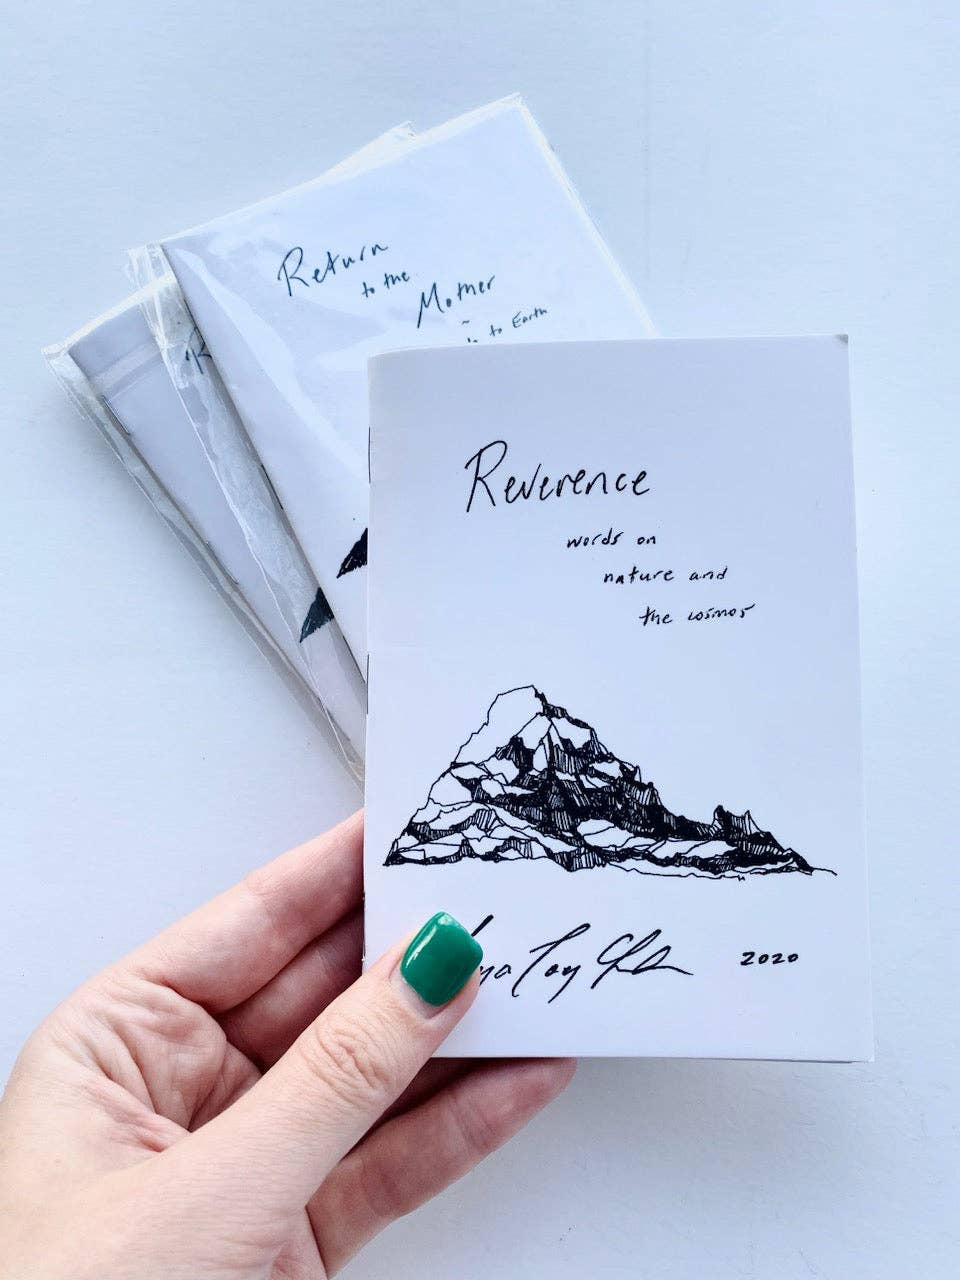 Return
to the
Mother
~
to Earth
R
Reverence
words on
nature and
the cosmos
2020